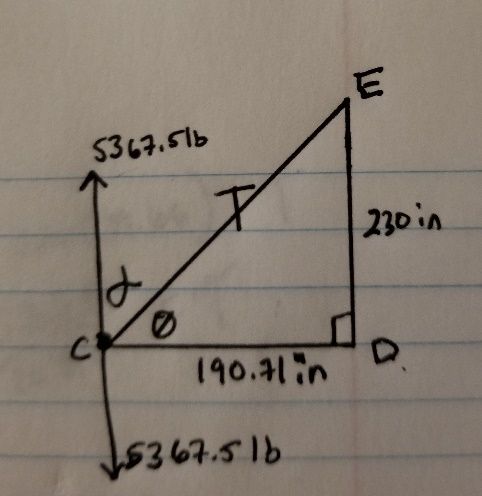 E
5367.5lb
T
230 in
α
Ø
C
D.
190.71 in
5367.5 lb